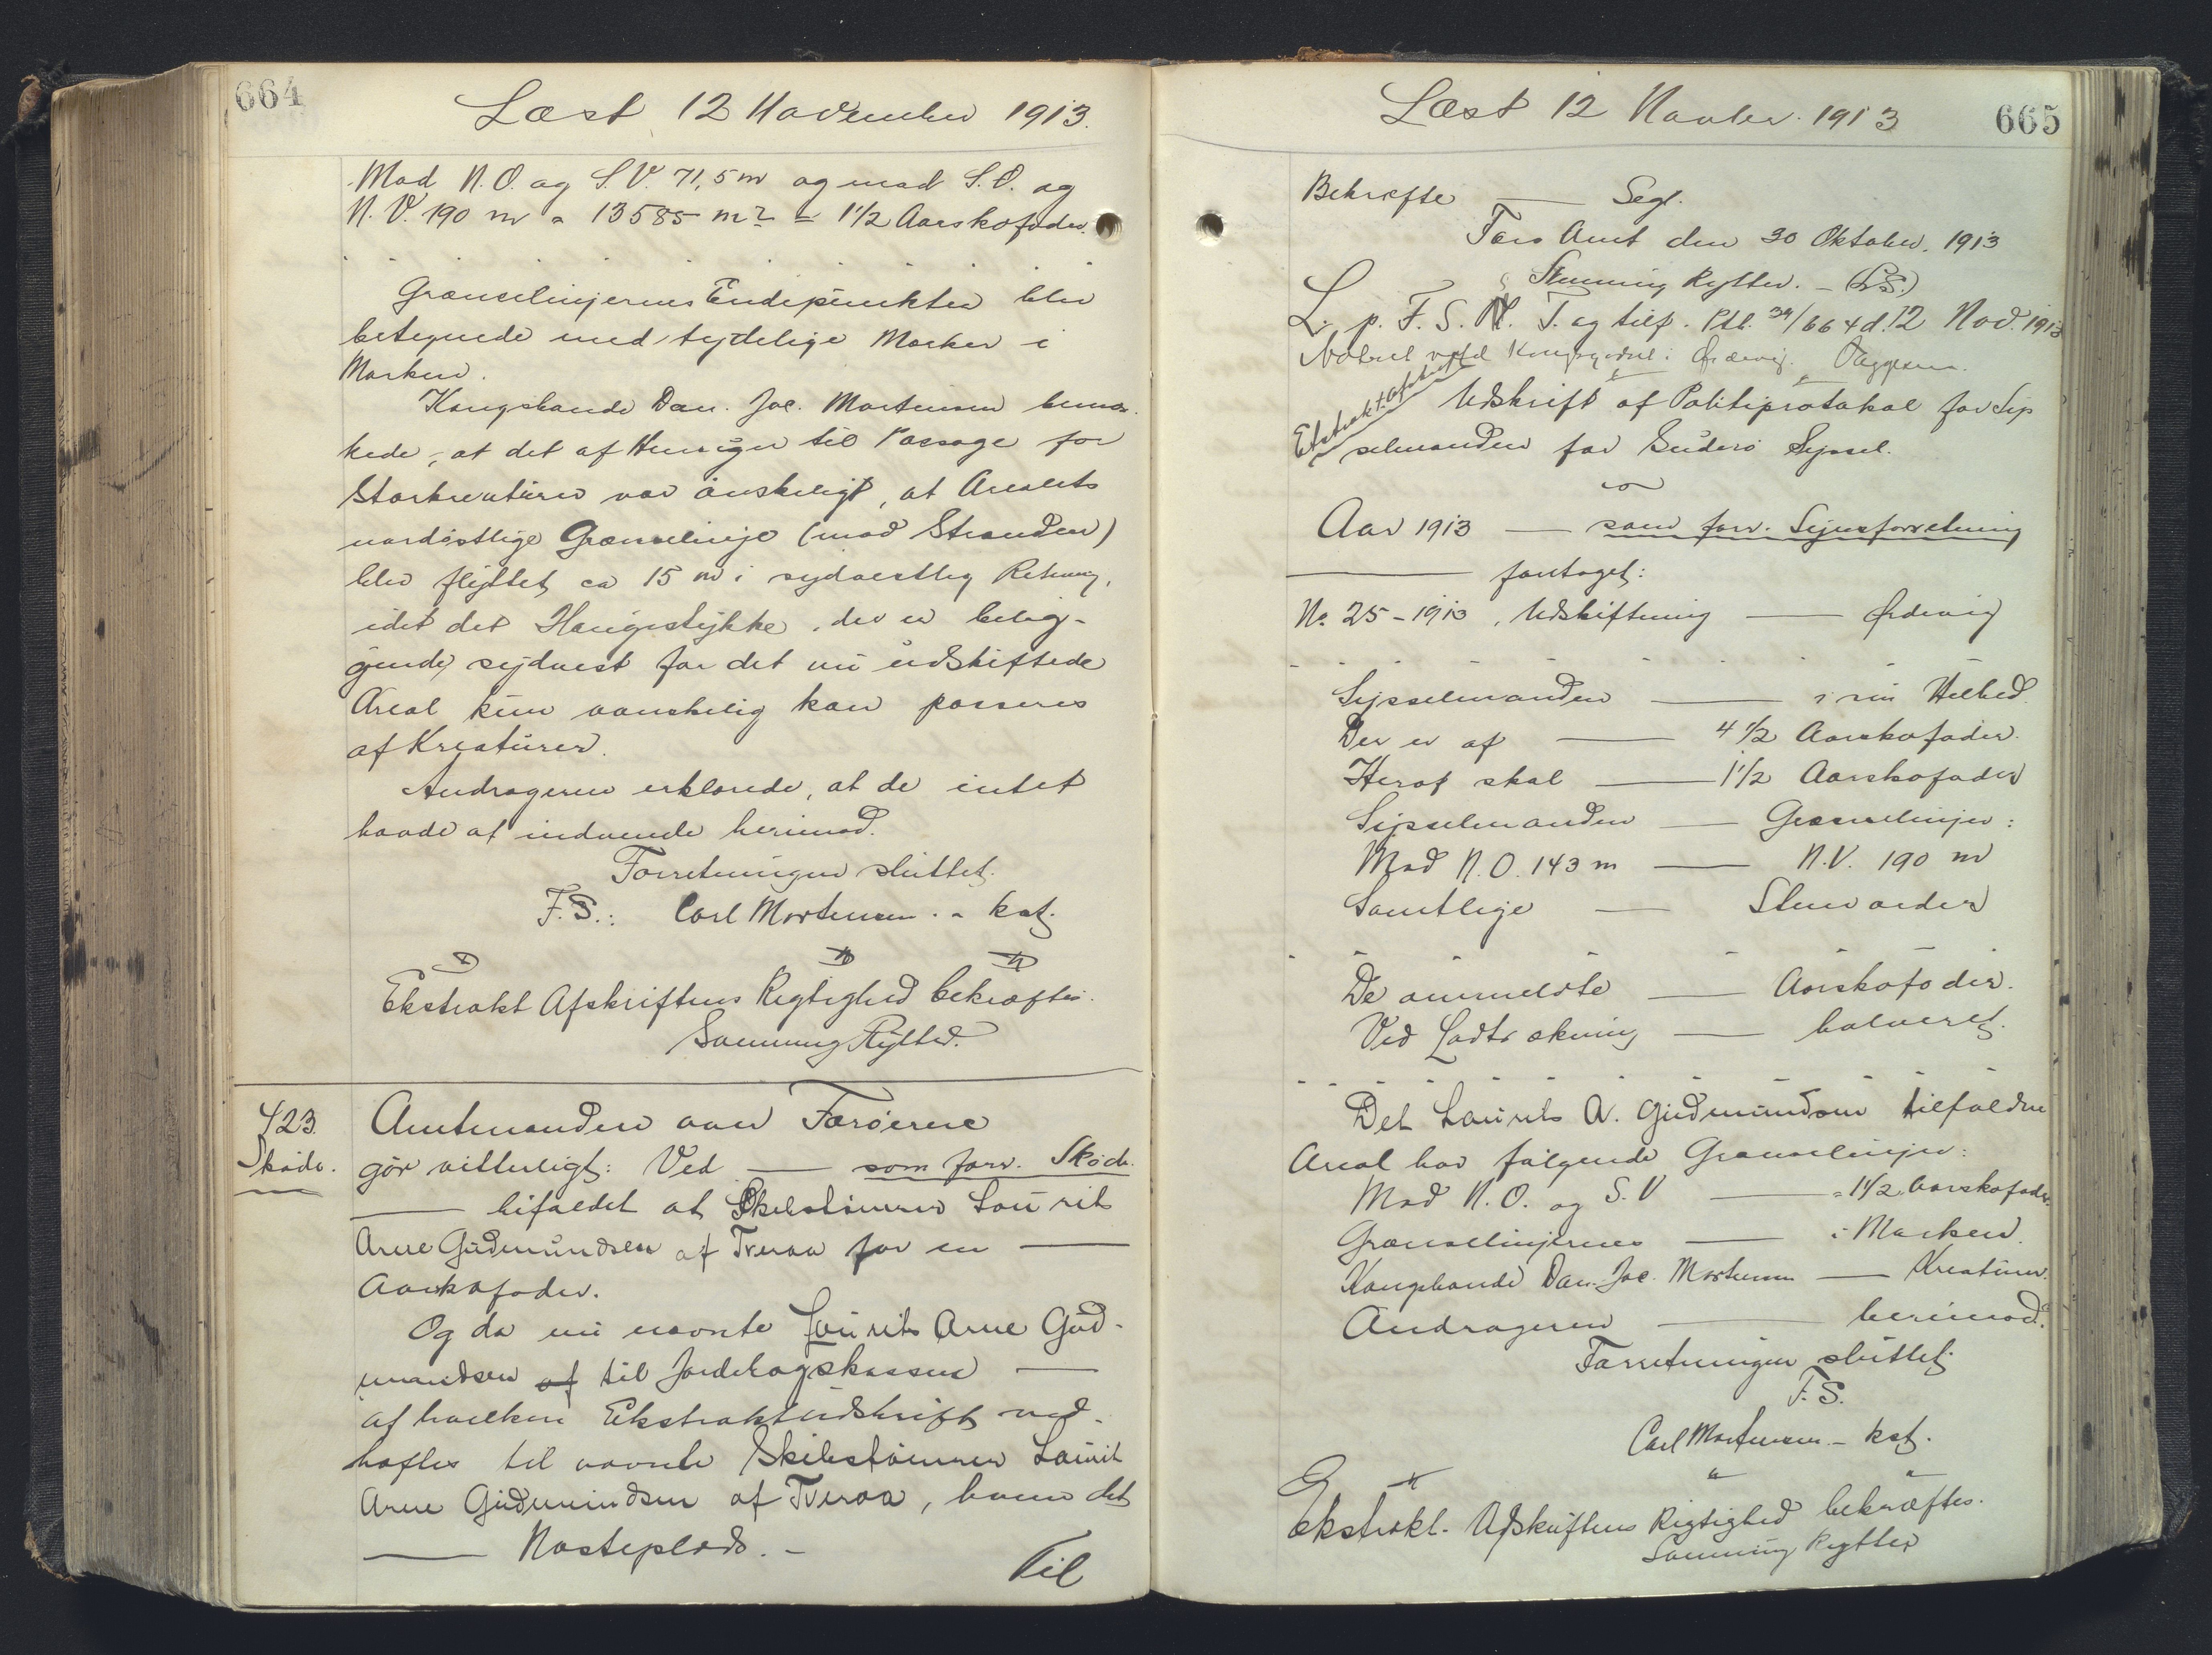 664
Læst 12 November 1913.
Mod N.O. og S.V. 71,5 m og mod S.O. og
N.V. 190 m = 13585 m2 = 1 1/2 Aarskofoder.
Grænselinjernes Endepunkter blev
betegnede med tydelige Mærker i
Marken.
Kongsbonde Dan. Jac. Mortensen bemær-
kede, at det af Hensyn til Passage for
Storkreaturer var ønskeligt, at Arealets
nordøstlige Grænselinje (mod Stranden)
blev flyttet ca 15 m i sydvestlig Retning,
idet det Haugestykke, der er belig-
gende sydvest for det nu udskiftede
Areal kun vanskelig kan passeres
af Kreaturer.
Andragerne erklærede, at de intet
havde at indvende herimod.
Forretningen sluttet.
F.S.: Carl Mortensen. - kst.
Ekstrakt Afskriftens Rigtighed bekræftes.
Svenning Rytter.
423.
Skøde.
Amtmanden over Færøerne
gör vitterligt: Ved — som forr. Skøde.
— bifaldet at Skibstømrer Laurits
Arne Gudmundsen af Tveraa for en —
Aarskofoder.
Og da nu nævnte Laurits Arne Gud-
mundsen af til Jordebogskassen —
af hvilken Ekstraktudskrift ved-
hæftes til nævnte Skibstømrer Laurit
Arne Gudmundsen af Tveraa, hvem det
— Nøsteplads. -
Til
Læst 12 Novbr. 1913
665
Bekræfte — Segl.
Færø Amt den 30 Oktober. 1913
Svenning Rytter. - (L.S.)
L. p. F. S. N. T. og tilf. Ptl. 34/664 d. 12 Nov. 1913
Ekstraktafskrift
Udskrift af Politiprotokol for Sys
selmanden for Suderø Syssel.
Aar 1913 — som forr. Synsforretning
— foretaget:
No. 25 - 1913, Udskiftning — Ørdevig
Sysselmanden — i sin Helhed.
Der er af — 4 1/2 Aarskofoder.
Heraf skal — 1 1/2 Aarskofoder
Sysselmanden — Grænselinjer:
Mod N.O. 143 m — N.V. 190 m
Samtlige — Stenvarder
De anmeldte — Aarskofoder.
Ved Lodtrækning — halveret.
Det Laurits A. Gudmundsen tilfaldne
Areal har følgende Grænselinjer:
Mod N.O. og S.V — = 1 1/2 Aarskofoder.
Grænselinjernes — i Marken.
Kongsbonde Dan. Jac. Mortensen — Kreaturer.
Andragerne — herimod.
Forretningen sluttet.
F.S.
Carl Mortensen - kst.
Ekstrakt. Udskriftens Rigtighed bekræftes.
Svenning Rytter